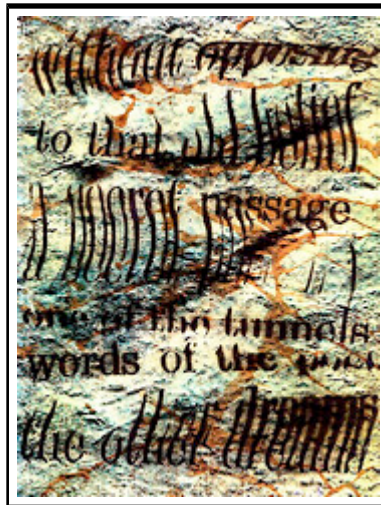 without opposing
to that old belief
a secret passage
one of the tunnels
words of the
the other dreams